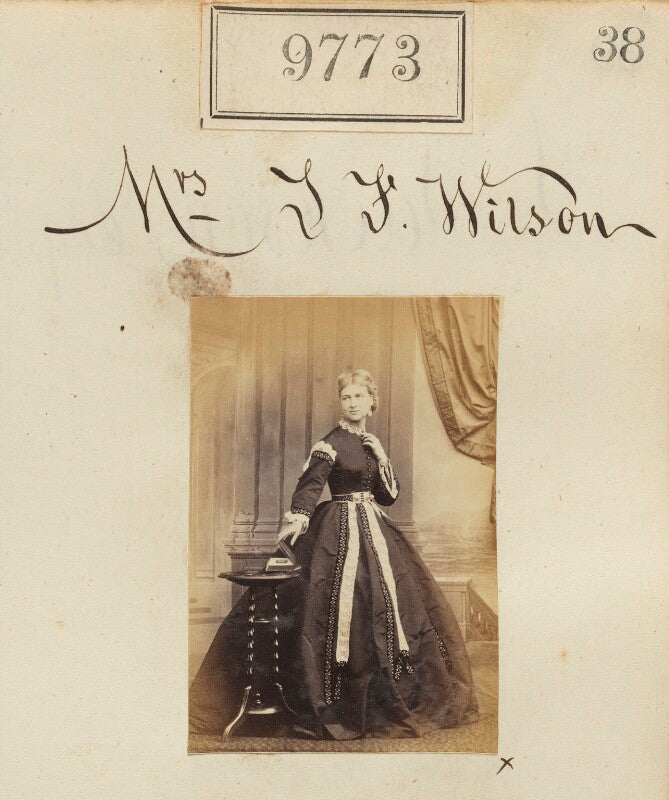 9773
38
Mrs J F. Wilson
x